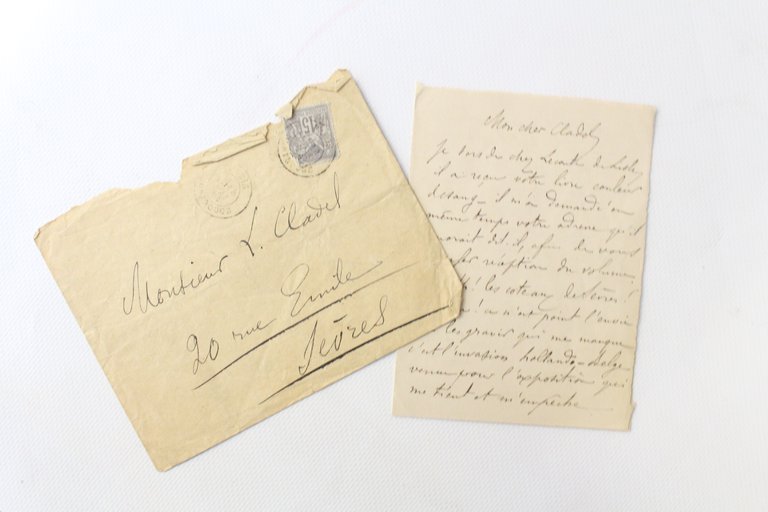 15c
Monsieur L. Cladel
20 rue Emile
Sèvres
Mon cher Cladel
Je sors de chez Leconte de Lisle,
il a reçu votre livre couleur
de sang – il m'a demandé en
même temps votre adresse qu'il
dit-il, afin de vous
réception du volume.
! les coteaux de Sèvres!
! ce n'est point l'envie
les gravir qui me manque
c'est l'invasion hollando-belge
venue pour l'exposition qui
me tient et m'empêche.